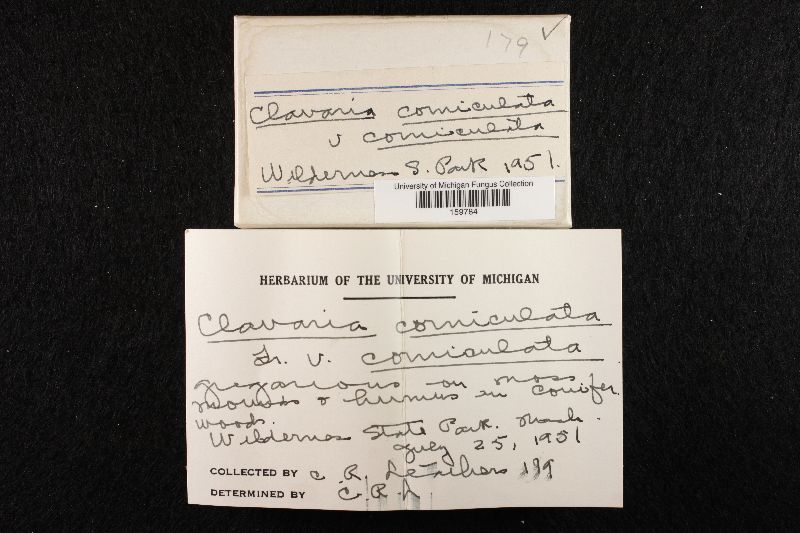 179 ✓
Clavaria corniculata
v corniculata
Wilderness S. Park 1951.
University of Michigan Fungus Collection
159784
HERBARIUM OF THE UNIVERSITY OF MICHIGAN
Clavaria corniculata
Fr. v. corniculata
gregarious on moss
mounds & humus in conifer
woods.
Wilderness State Park. Mack.
July 25, 1951
COLLECTED BY C. R. Leathers 179
DETERMINED BY C. R. L